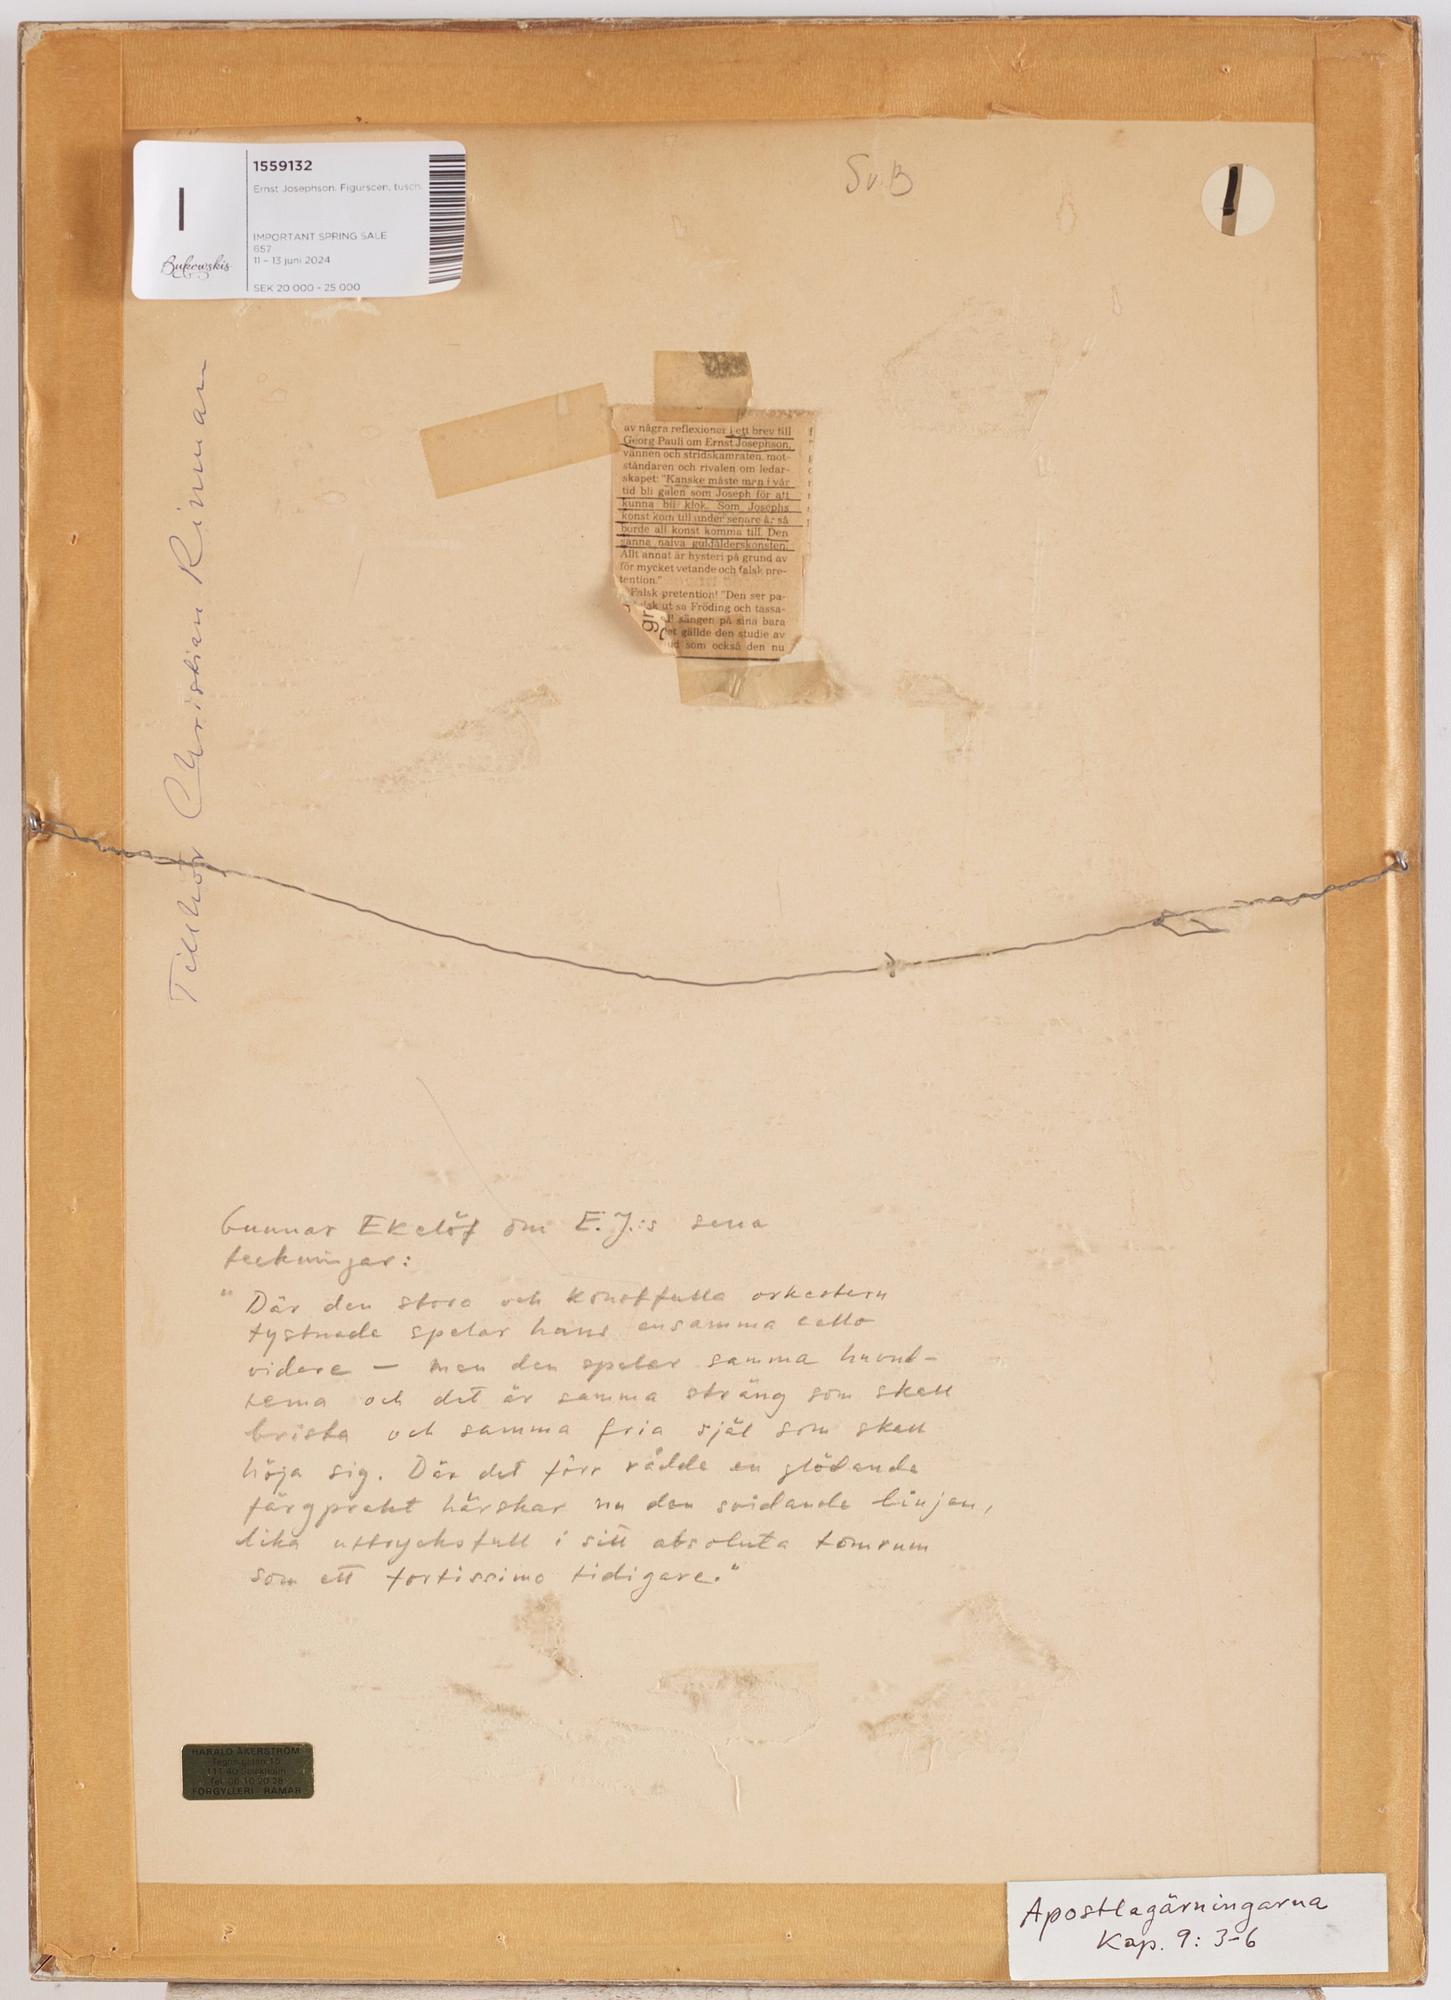 1559132
Ernst Josephson. Figurscen, tusch.
IMPORTANT SPRING SALE
657
11 – 13 juni 2024
SEK 20 000 - 25 000
Bukowskis
Sv. B
Tillhör Christian Rinman
av några reflexioner i ett brev till
Georg Pauli om Ernst Josephson,
vännen och stridskamraten, mot-
ståndaren och rivalen om ledar-
skapet: "Kanske måste man i vår
tid bli galen som Joseph för att
kunna bli klok. Som Josephs
konst kom till under senare år så
borde all konst komma till. Den
sanna naiva guldålderskonsten.
Allt annat är hysteri på grund av
för mycket vetande och falsk pre-
tention."
Falsk pretention! "Den ser pa-
ut sa Fröding och tassa-
sängen på sina bara
gällde den studie av
som också den nu
gr
Gunnar Ekelöf om E.J.:s sena
teckningar:
"Där den stora och konstfulla orkestern
tystnade spelar hans ensamma cello
vidare — men den spelar samma huvud-
tema och det är samma sträng som skall
brista och samma fria själ som skall
höja sig. Där det förr rådde en glödande
färgprakt härskar nu den svidande linjen,
lika uttrycksfull i sitt absoluta tomrum
som ett fortissimo tidigare."
HARALD ÅKERSTRÖM
Tegnérgatan 15
111 40 Stockholm
Tel. 08-10 20 28
FÖRGYLLERI - RAMAR
Apostlagärningarna
Kap. 9: 3-6